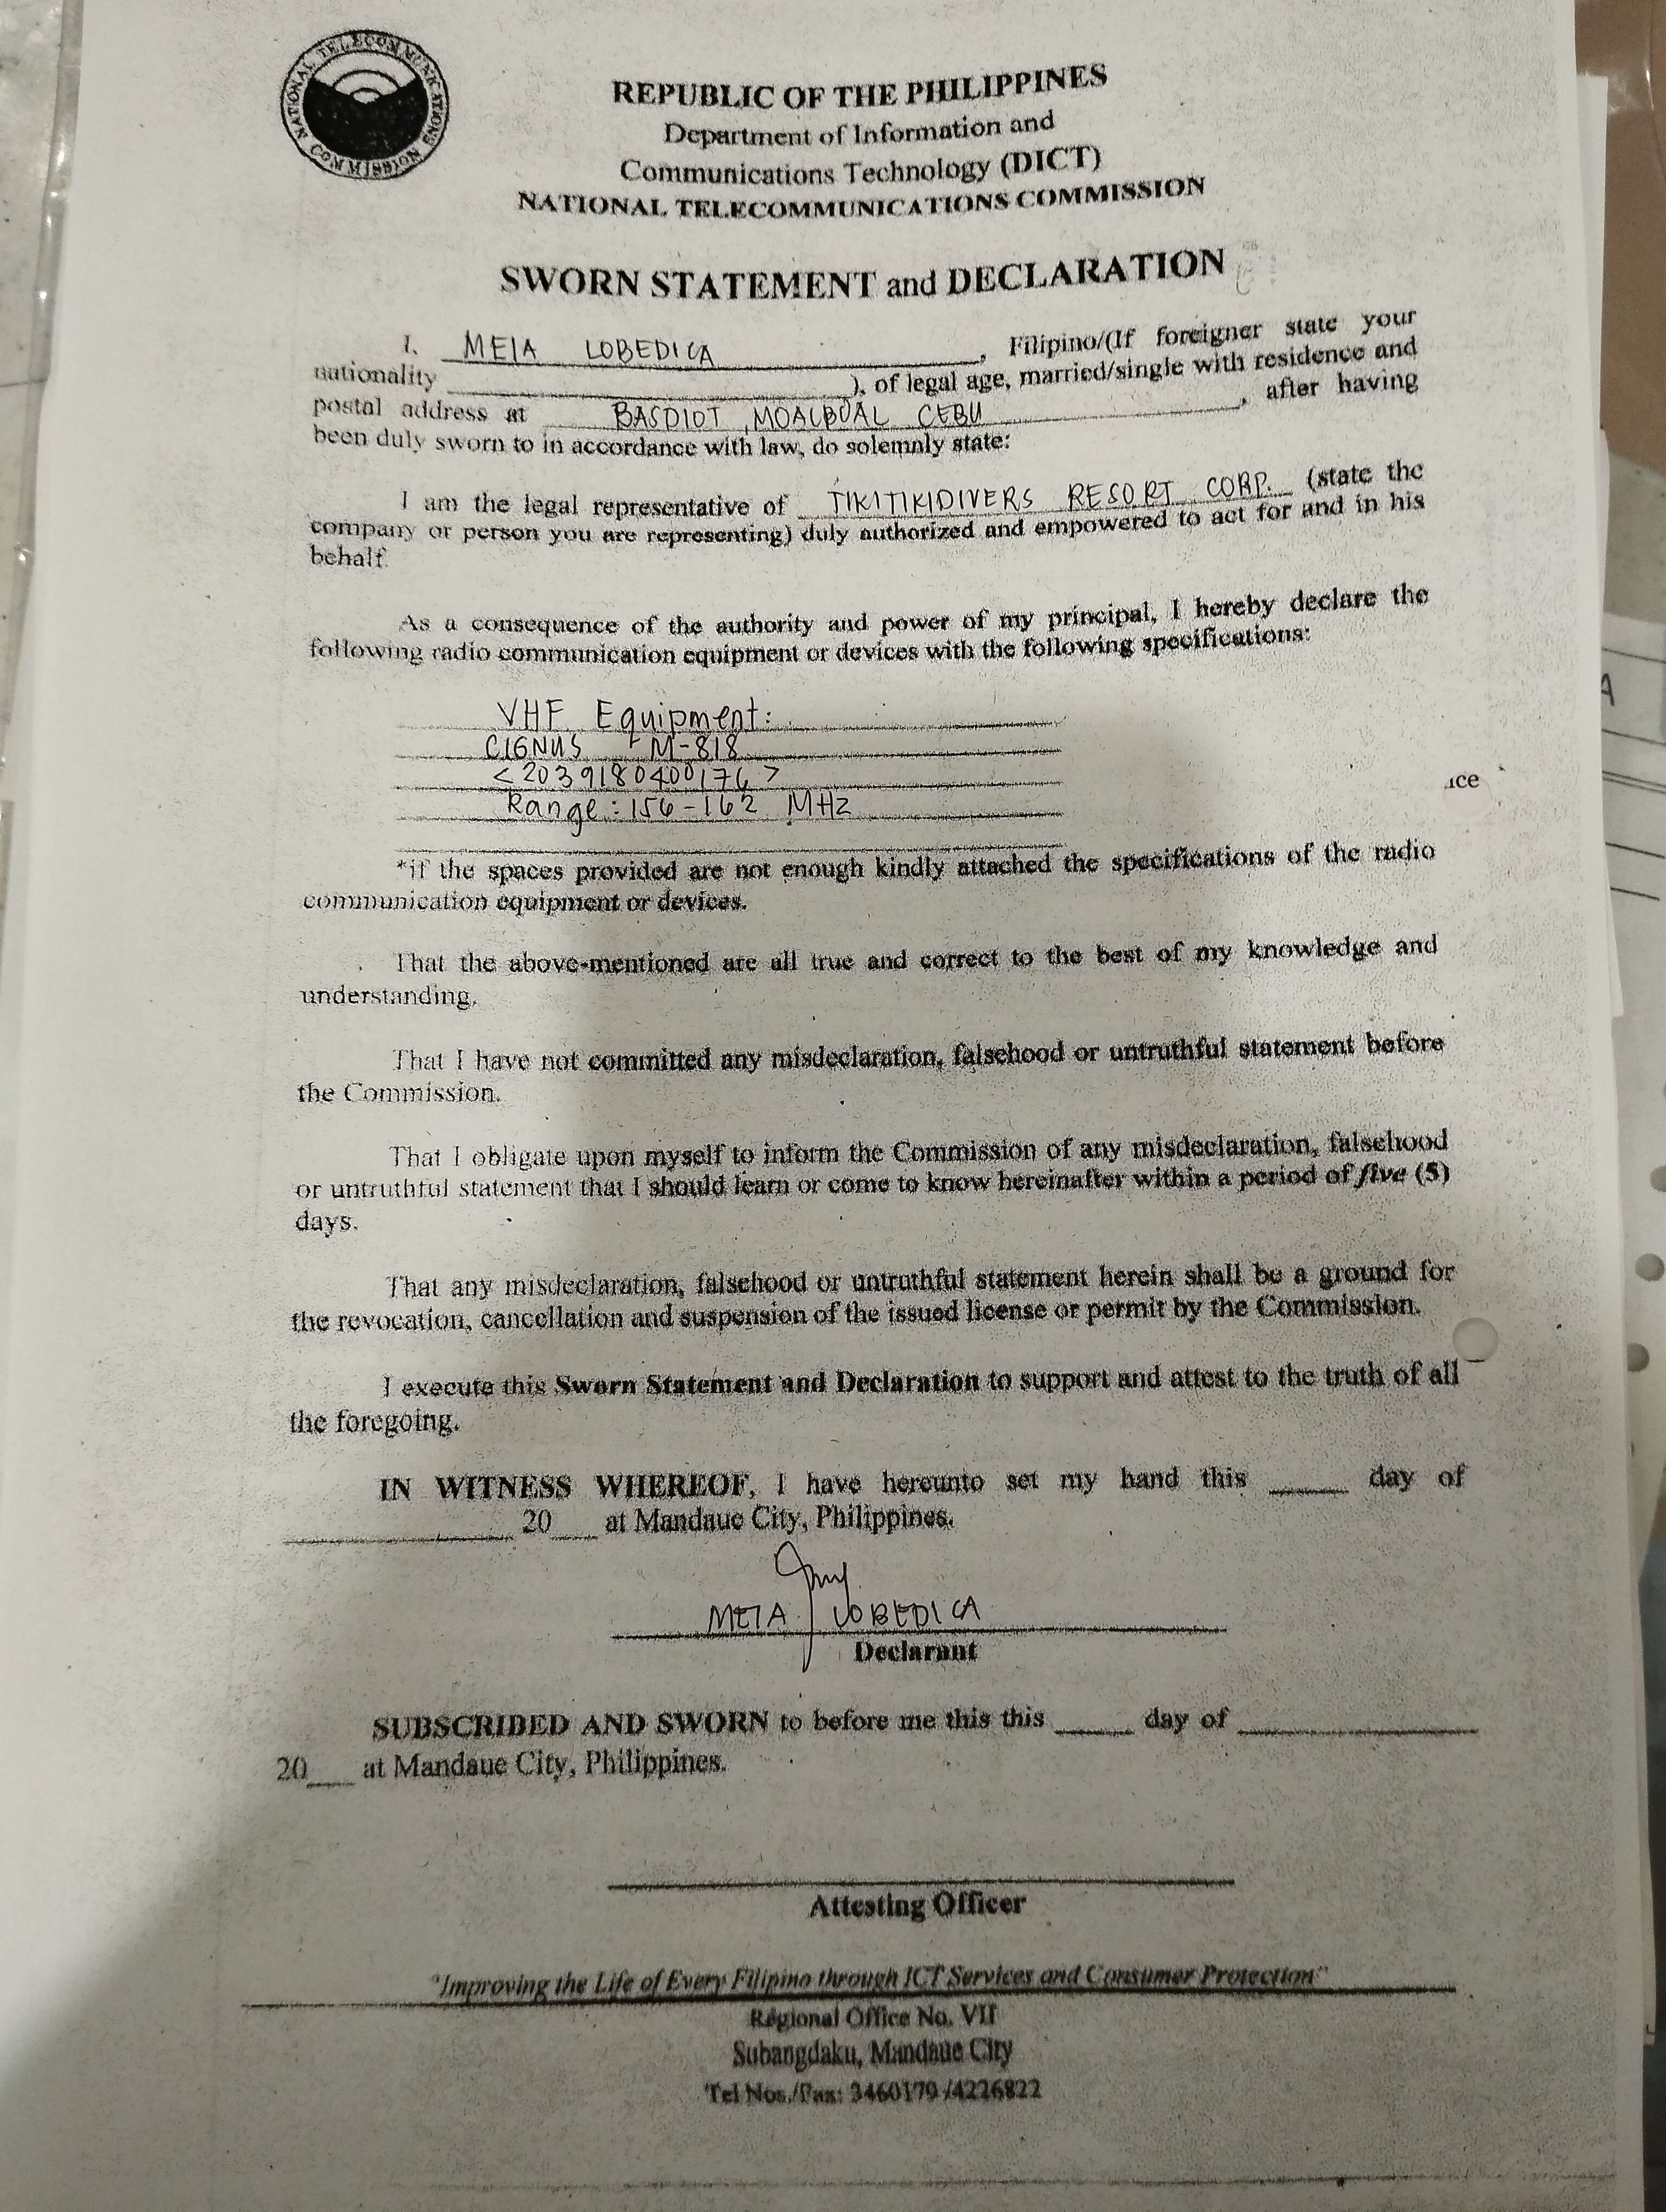 NATIONAL TELECOMMUNICATIONS COMMISSION
REPUBLIC OF THE PHILIPPINES
Department of Information and
Communications Technology (DICT)
NATIONAL TELECOMMUNICATIONS COMMISSION
SWORN STATEMENT and DECLARATION
I. MEIA LOBEDICA, Filipino/(If foreigner state your
nationality ), of legal age, married/single with residence and
postal address at BASDIOT, MOALBOAL CEBU, after having
been duly sworn to in accordance with law, do solemnly state:
I am the legal representative of TIKITIKIDIVERS RESORT CORP. (state the
company or person you are representing) duly authorized and empowered to act for and in his
behalf.
As a consequence of the authority and power of my principal, I hereby declare the
following radio communication equipment or devices with the following specifications:
VHF Equipment:
CIGNUS M-818
<2039180400176>
Range: 156-162 MHz
ice
*if the spaces provided are not enough kindly attached the specifications of the radio
communication equipment or devices.
That the above-mentioned are all true and correct to the best of my knowledge and
understanding.
That I have not committed any misdeclaration, falsehood or untruthful statement before
the Commission.
That I obligate upon myself to inform the Commission of any misdeclaration, falsehood
or untruthful statement that I should learn or come to know hereinafter within a period of five (5)
days.
That any misdeclaration, falsehood or untruthful statement herein shall be a ground for
the revocation, cancellation and suspension of the issued license or permit by the Commission.
I execute this Sworn Statement and Declaration to support and attest to the truth of all
the foregoing.
IN WITNESS WHEREOF, I have hereunto set my hand this ____ day of
____ 20__ at Mandaue City, Philippines.
MEIA LOBEDICA
Declarant
SUBSCRIBED AND SWORN to before me this this ____ day of ____
20__ at Mandaue City, Philippines.
Attesting Officer
"Improving the Life of Every Filipino through ICT Services and Consumer Protection"
Regional Office No. VII
Subangdaku, Mandaue City
Tel Nos./Fax: 3460179 /4226822